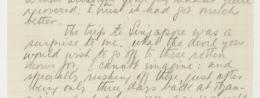 recovered, I trust it had got much
better.
The trip to Singapore was a
surprise to me, what the devil you
would wish to go to these
places for I cannot imagine and
specially rushing off there just after
being only three days back at